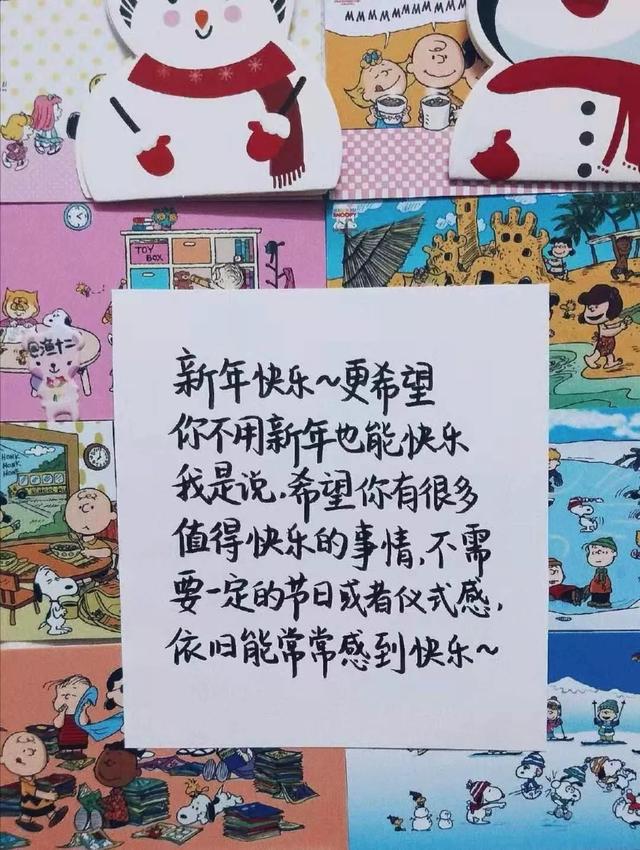 MMMMMMMMMM
TOY
BOX
SNOOPY
@渔十二
HONK
HONK
HONK
新年快乐~更希望
你不用新年也能快乐
我是说，希望你有很多
值得快乐的事情，不需
要一定的节日或者仪式感，
依旧能常常感到快乐~